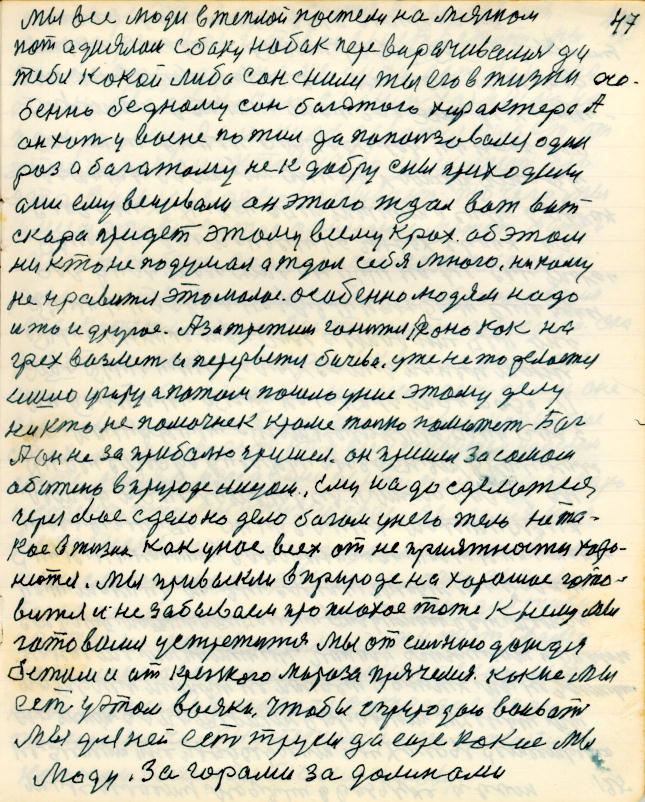 47
Мы все люди в теплой постели на мягком
под адиялам с боку на бок переварачиваимся да
тебя какой либа сон снили ты его в жизни осо-
бенно бедному сон багатого характера А
он хоть у восне по жил да попользовался один
роз а багатому не к добру сны приходили
они ему верювали он этого ждал вот вот
скора придет этому всему крах. об этом
ни кто не подумал а ждал себя много. ни кому
не нравится это малое. особенно людям надо
и то и другое. А за третим гонится оно как на
грех возмет и перервется бичева. уже не то делается
а потом пошло у ние этому делу
ни кто не помочнек кроме толко поможет Бог
А он не за прибалю пришел. он пришел за самом
обижен в природе лицом, ему надо сделатся,
через твое сделоно дело богом у него жель не та-
кое в жизни как у нас всех от не приятности хадо-
нится. Мы привыкли в природе на харошое гото-
вится и не забываем про плохое тоже к нему мы
готовимся устретится мы от силного дождя
бежим и от крепкого мороза прячемся. какие мы
есть у этом вояки, чтобы с природаю воивать
мы для ней есть трусы да еще какие мы
люди. За горами за долинами